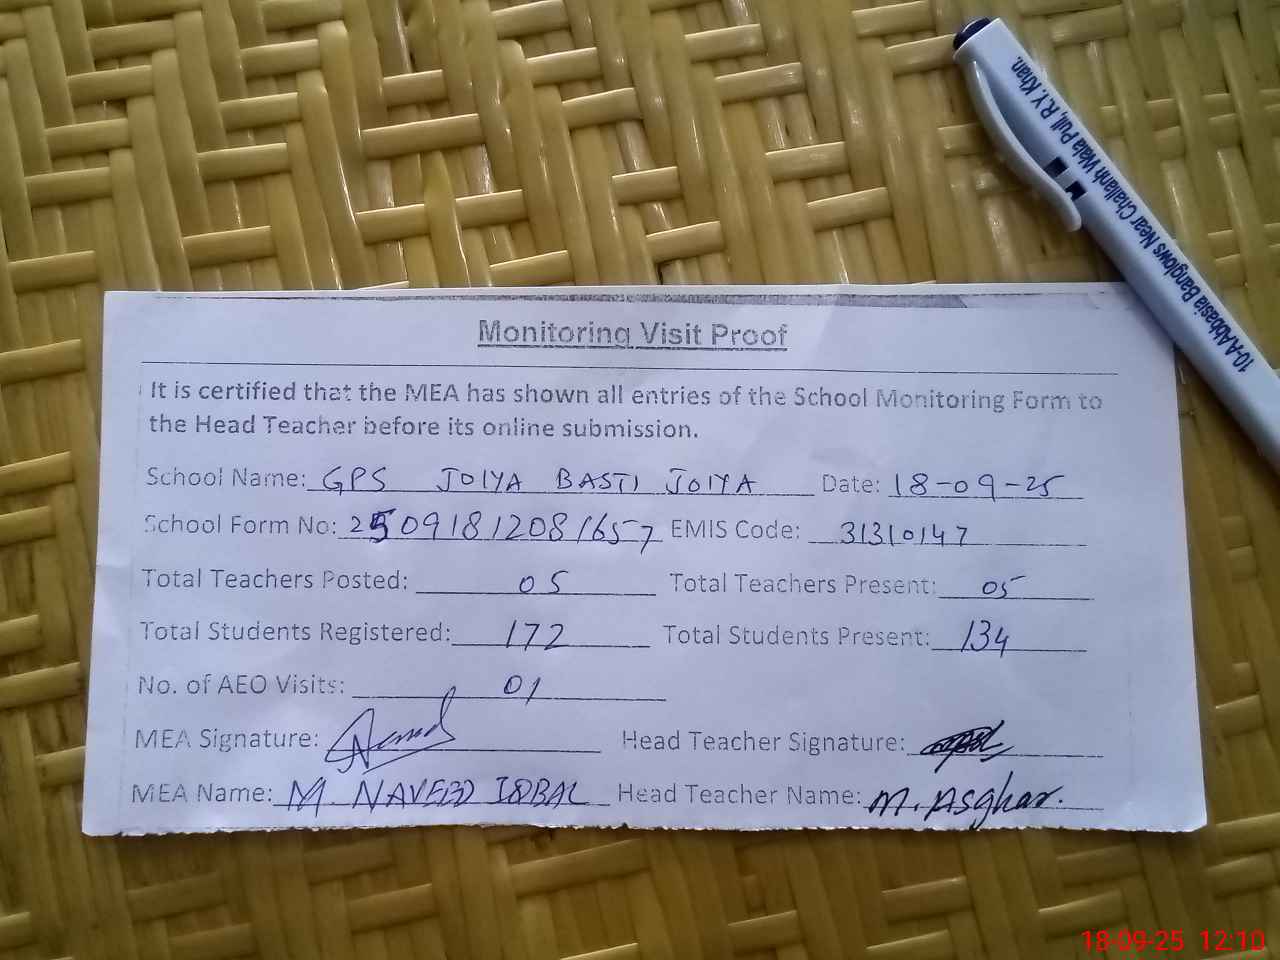 10-A Abbasia Banglows Near Challanh Wala Pull, R.Y. Khan.
Monitoring Visit Proof
It is certified that the MEA has shown all entries of the School Monitoring Form to
the Head Teacher before its online submission.
School Name: GPS JOIYA BASTI JOIYA Date: 18-09-25
School Form No: 25091812081657 EMIS Code: 31310147
Total Teachers Posted: 05 Total Teachers Present: 05
Total Students Registered: 172 Total Students Present: 134
No. of AEO Visits: 01
MEA Signature: Head Teacher Signature:
MEA Name: M. NAVEED IQBAL Head Teacher Name: M. Asghar.
18-09-25 12:10